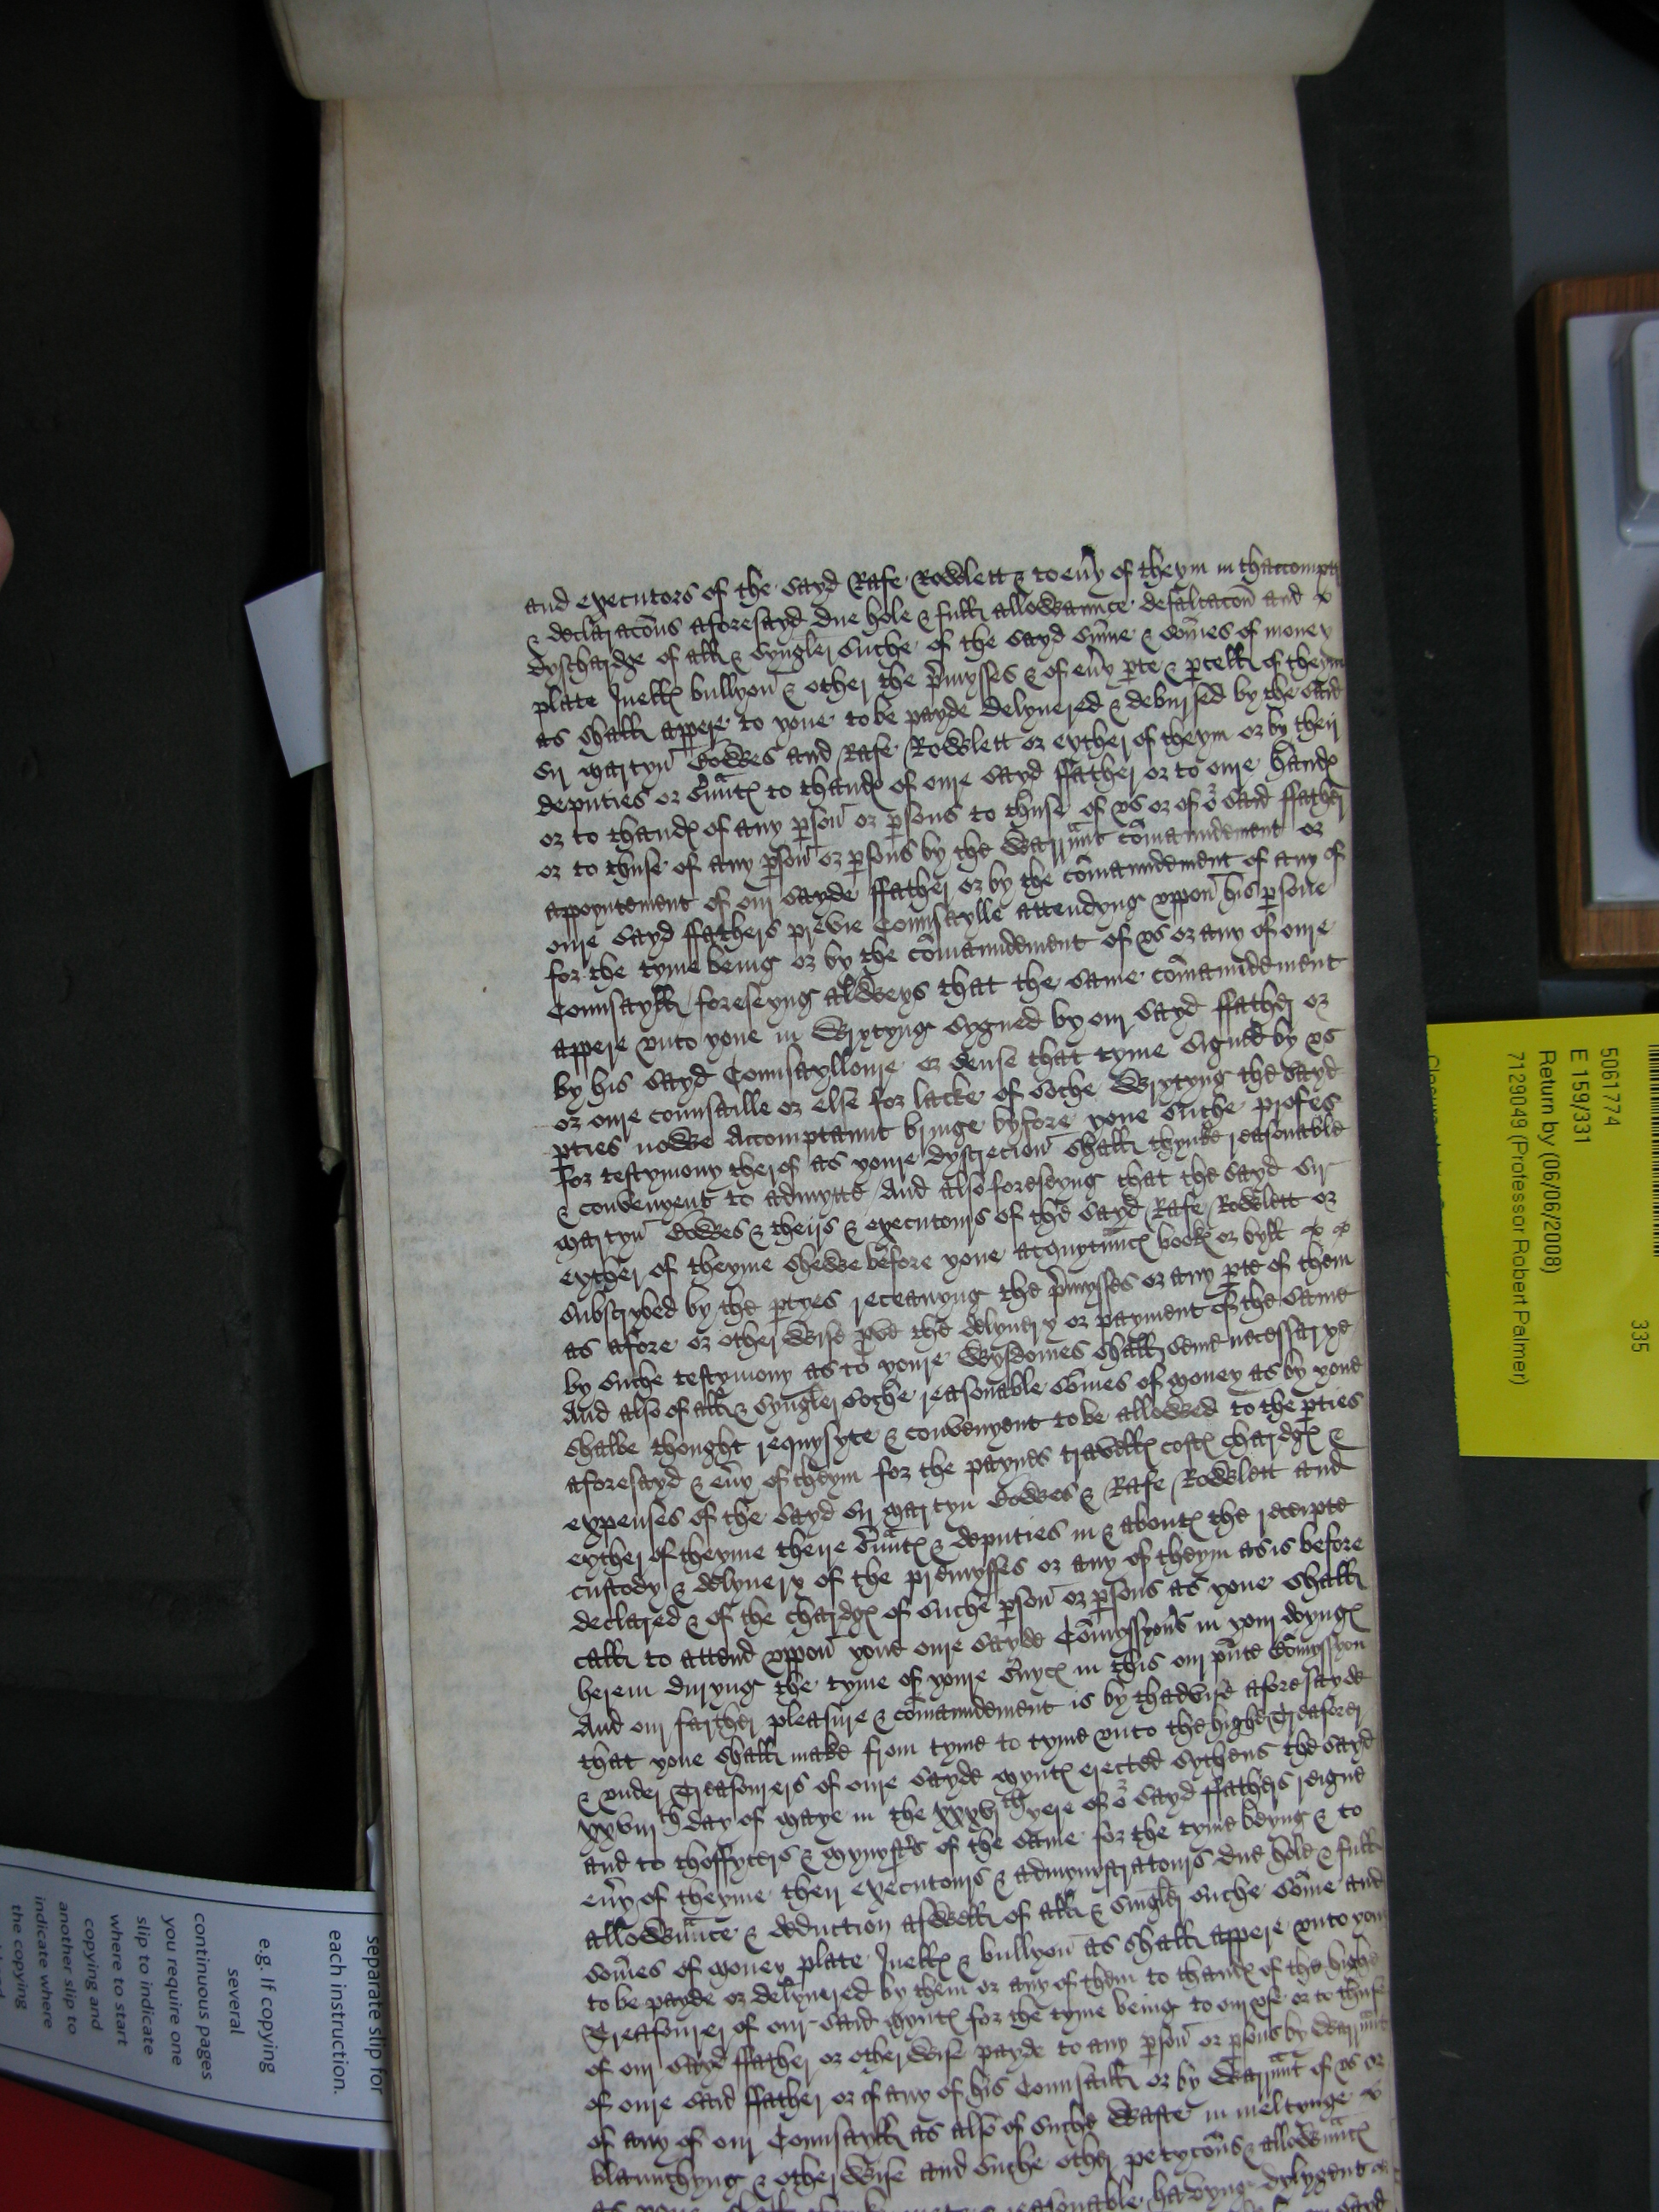 and executors of the sayd Rafe Rowlett & to eu'y of theym in thaccompt
& declaracõns aforesayd due hole & full allowaunce defaltacoñ and
dyschardge of all & syngler suche of the sayd sũme & sõmes of money
plate Juell bullyon & other the p'mysses & of eu'y pte & pcell of theym
as shall appere to youe to be payde delyuered & debursed by the said
Sir Martyn Bowes and Rafe Rowlett or eyther of theym or by their
deputies or s'uñts to thands of oure sayd ffather or to oure hands
or to thands of any pson or psons to thuse of vs or of or said ffather
or to thuse of any pson or psons by the warrunt cõmaundement or
appoyntement of our sayde ffather or by the cõmaundement of any of
oure sayd ffathers previe Counsaylle attendyng vppon his psone
for the tyme being or by the cõmaundement of vs or any of oure
Counsayll foreseyng alweys that the same cõmaundement
appere vnto youe in wrytyng sygned by our sayd ffather or
by his sayd Counsayllours or sense that tyme signed by vs
or oure counsaille or else for lacke of soche wrytyng the sayd
pties nowe Accomptaunt bringe byfore youe suche profes
for testymony therof as youre dyscrecion shall thynke reasonable
& convenyent to admytte And also foreseyng that the sayd Sir
Martyn Bowes & theirs & executours of the sayd Rafe Rowlett or
eyther of theyme shewe before youe acquytuncs books or byll
subscrybed by the ptyes receauyng the p'mysses or any pte of them
as afore or other wise prove the delyuery or payment of the same
by suche testymony as to youre wysdomes shall seme necessarye
And also of all & syngler soche reasonable sõmes of money as by youe
shalbe thought requysyte & convenyent to be allowed to the pties
aforesayd & eu'y of theym for the paynes travells costs chardgs &
expenses of the sayd Sir Martyn Bowes & Rafe Rowlett and
eyther of theyme theire s'uñts & deputies in & abouts the receipte
custody & delyuery of the premysses or any of theym as is before
declared & of the chardgs of suche pson or psons as youe shall
call to attend vppon youe oure sayde Cõmyssyon's in your doyngs
herein duryng the tyme of youre s'uyce in this our p'nte Cõmyssyon
And our farther pleasure & cõmaundement is by thadvise aforesayde
that youe shall make from tyme to tyme vnto the highe Treasorer
& under Treasourers of oure sayde mynts erected sythens the sayd
xxviijth day of Maye in the xxxvjth yere of or sayd ffathers reigne
and to thoffycers & mynyst's of the same for the tyme beyng & to
eu'y of theyme their executours & admynystratours due hole & full
allowaunce & deduction aswell of all & singler suche sõme and
sõmes of money plate Juell & bullyon as shall appere vnto you
to be payde or delyuered by them or any of them to thands of the highe
Treasourer of our said mynts for the tyme being to our vse or to thuse
of our sayd ffather or other wise payde to any pson or psons by warrunt
of oure said ffather or of any of his Counsaill or by warrunt of vs or
of any of our Counsayll as also of suche waste in meltynge
blaunchyng & other wise and suche other petycõns & allowuncs
as youe shall thynke mete & reasonable havyng dylygent
5061774
335
E 159/331
Return by (06/06/2008)
7129049 (Professor Robert Palmer)
separate slip for
each instruction.
e.g. If copying
several
continuous pages
you require one
slip to indicate
where to start
copying and
another slip to
indicate where
the copying